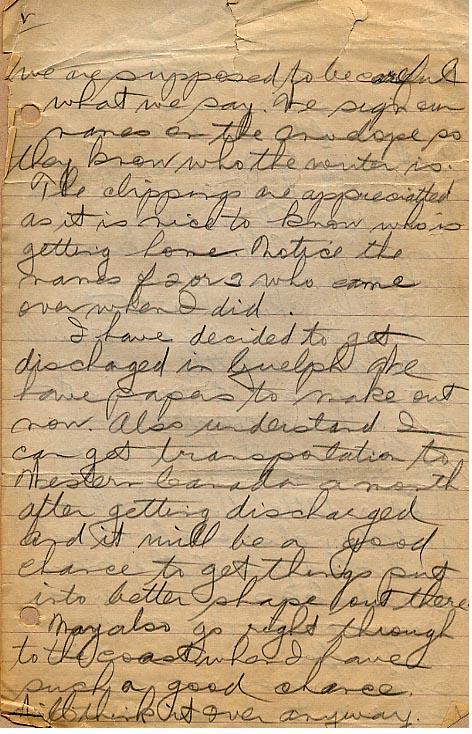 we are supposed to be careful
what we say. We sign our
names on the envelope so
they know who the writer is.
The clippings are appreciatted
as it is nice to know who is
getting home. Notice the
names of 2 or 3 who came
over when I did.
I have decided to get
dischaged in Guelph. We
have papers to make out
now. Also understand I
can get transportation to
Western Canada a month
after getting discharged
and it will be a good
chance to get things put
into better shape out there
May also go right through
to the coast when I have
such a good chance.
Will think it over anyway.